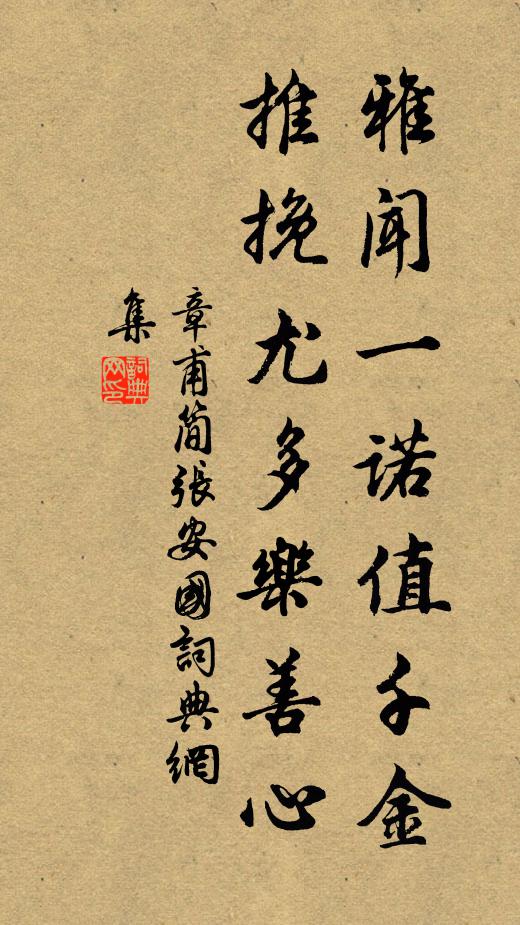 雅聞一諾值千金
推挽尤多樂善心
章甫簡張安國詞典網
集
詞典
网印